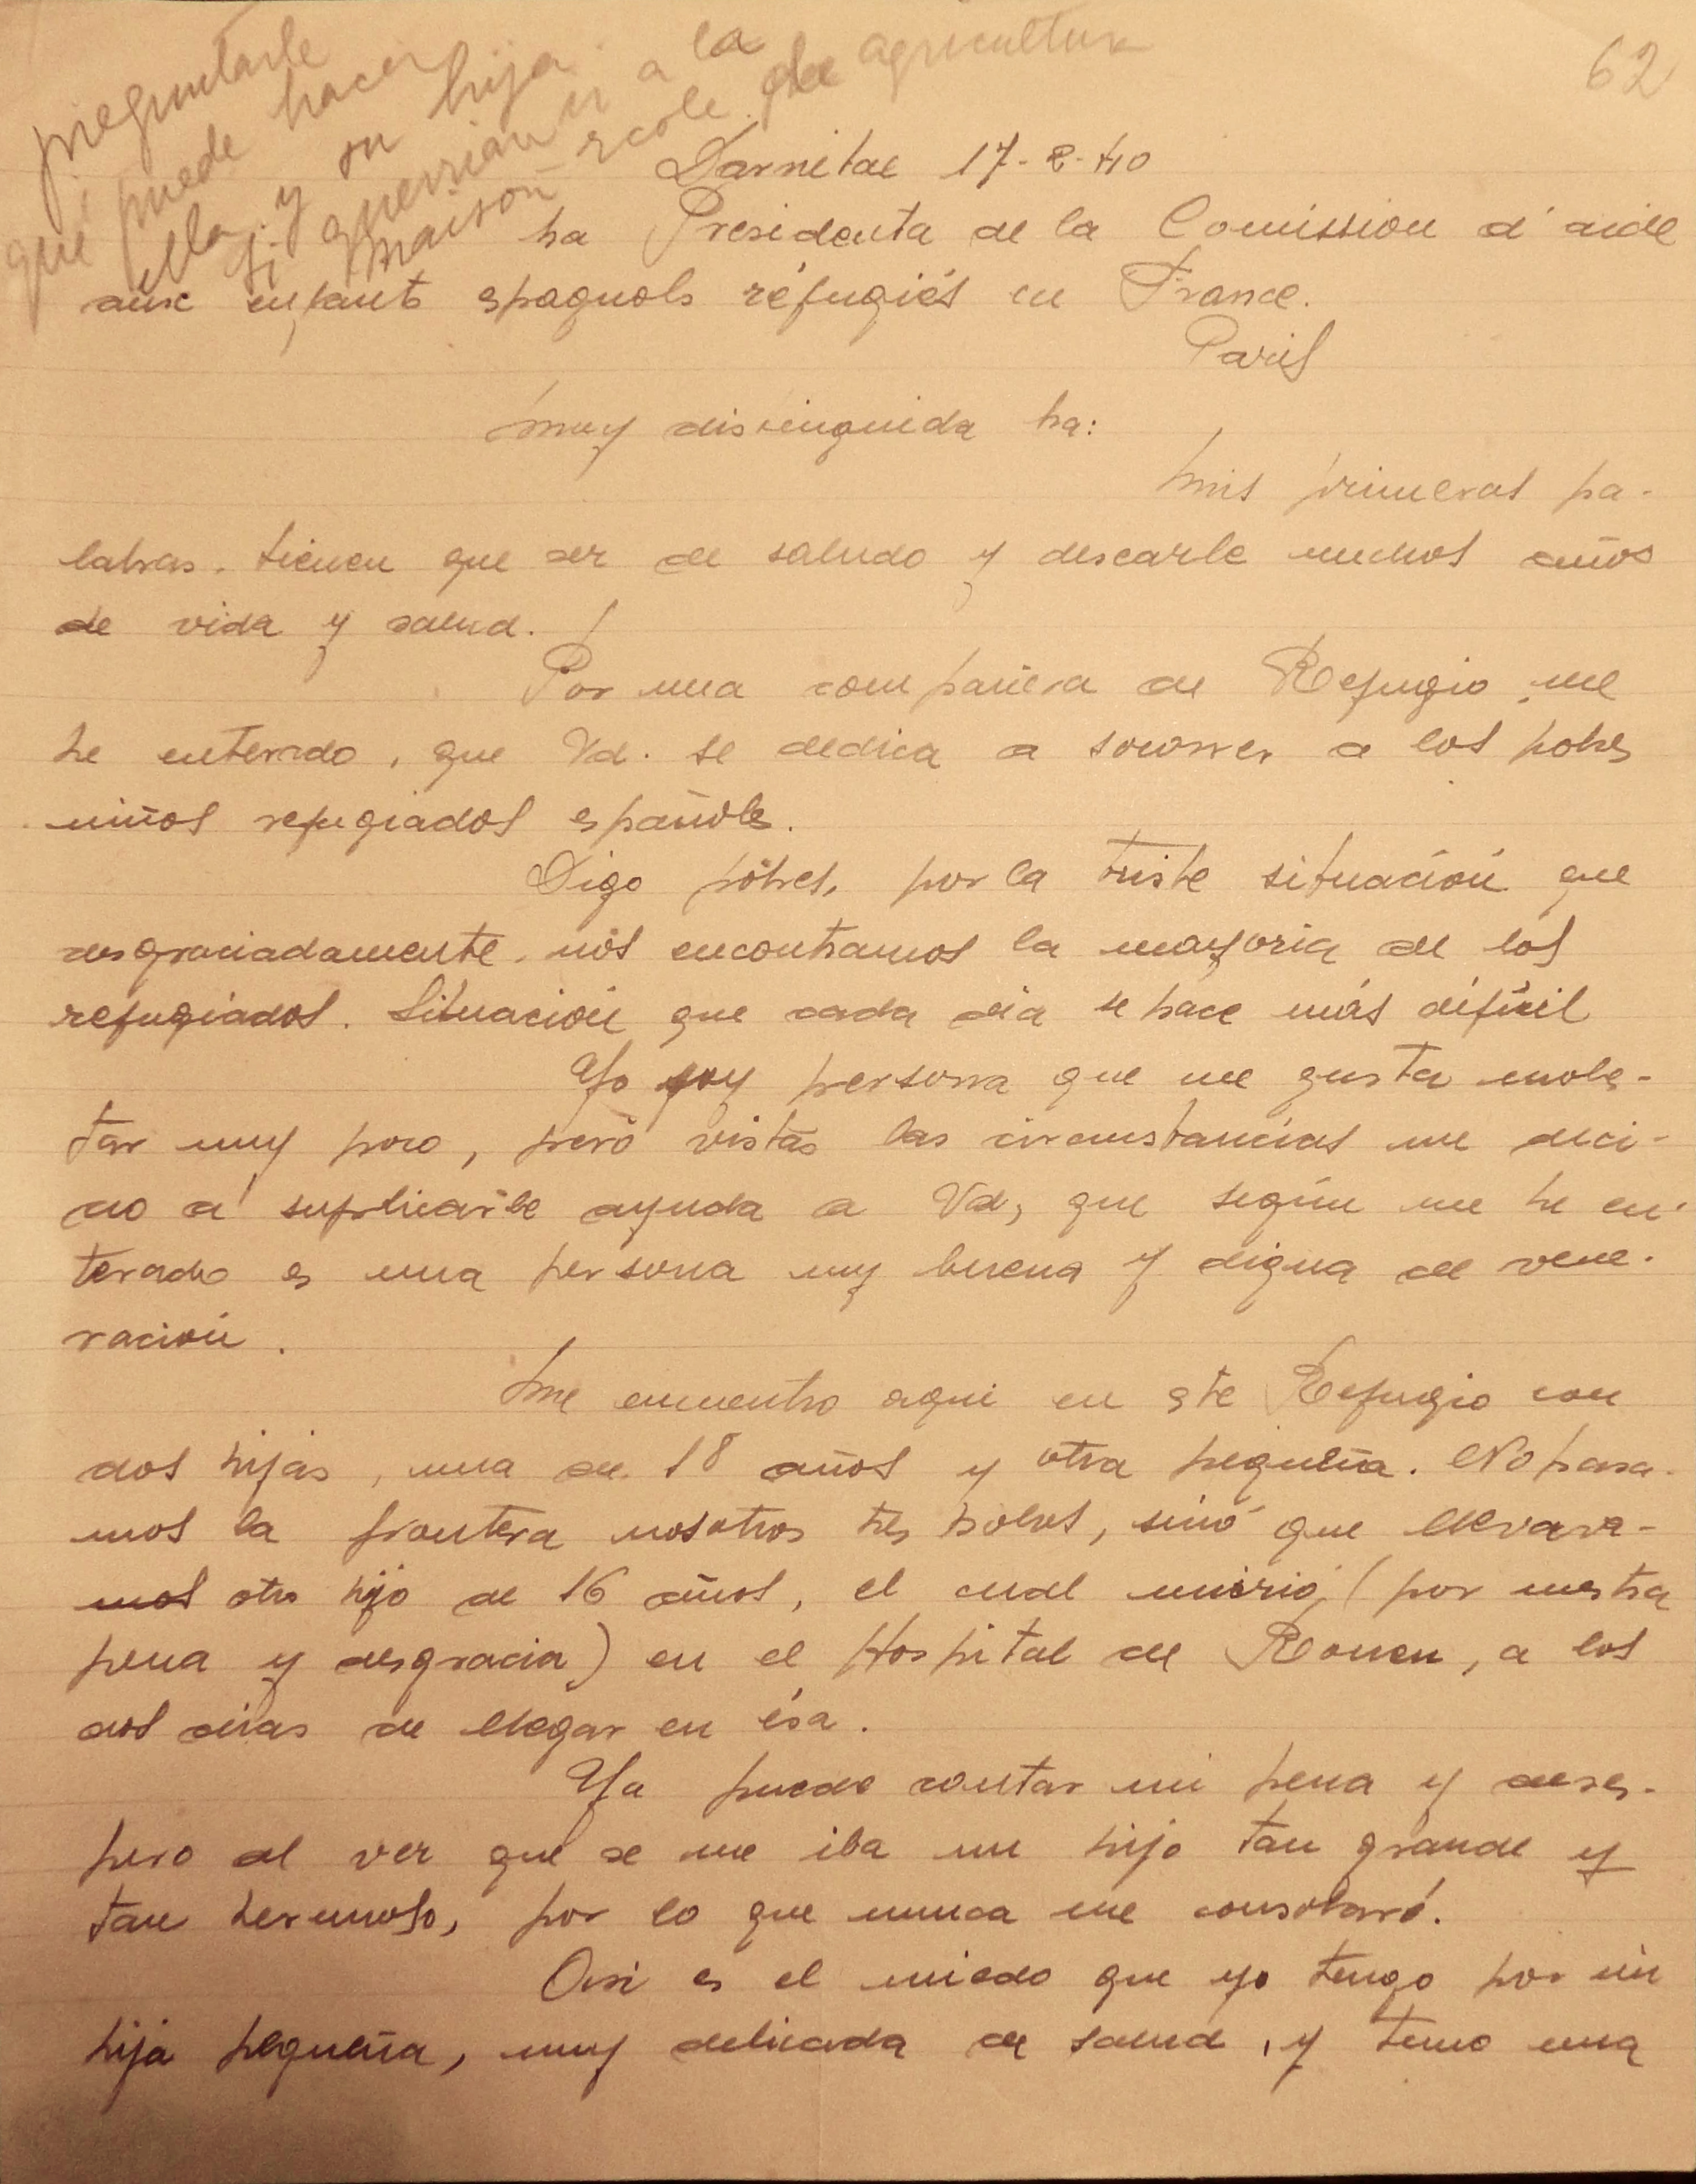 62
preguntarle
qué puede hacer
ella y su hija
si querrian ir a la
maison école de agricultura
Darnetal 17-2-40
Sra Presidenta de la Comission d'aide
aux enfants espagnols réfugiés en France.
Paris
Muy distinguida Sra:
Mis primeras pa-
labras. tienen que ser de saludo y desearle muchos años
de vida y salud.
Por una compañera de Refugio me
he enterado, que Vd. se dedica a socorrer a los pobres
niños refugiados españoles.
Digo pobres, por la triste situación que
desgraciadamente nos encontramos la mayoria de los
refugiados. Situación que cada dia se hace más difícil
Yo soy persona que me gusta moles-
tar muy poco, peró vistas las circumstancias me deci-
do a suplicarle ayuda a Vd, que según me he en-
terado es una persona muy buena y digna de vene-
ración.
Me encuentro aqui en este Refugio con
dos hijas, una de 18 años y otra pequeña. No pasa-
mos la frontera nosotros tres solos, sinó que llevava-
mos otro hijo de 16 años, el cual murió, (por nuestra
pena y desgracia) en el Hospital de Rouen, a los
dos dias de llegar en ésa.
Ya puede contar mi pena y deses-
pero al ver que se me iba un hijo tan grande y
tan hermoso, por lo que nunca me consolaré.
Asi es el miedo que yo tengo por mi
hija pequeña, muy delicada de salud, y temo una